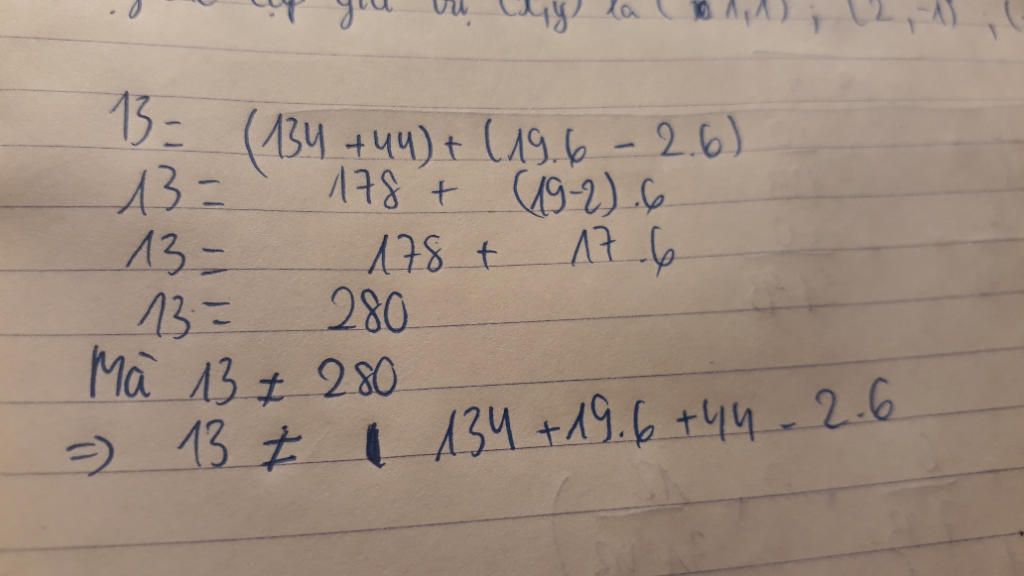 trị (x,y) là (1,1); (2,-1), (
13 = (134 + 44) + (19.6 - 2.6)
13 = 178 + (19-2).6
13 = 178 + 17.6
13 = 280
Mà 13 ≠ 280
=> 13 ≠ 134 + 19.6 + 44 - 2.6